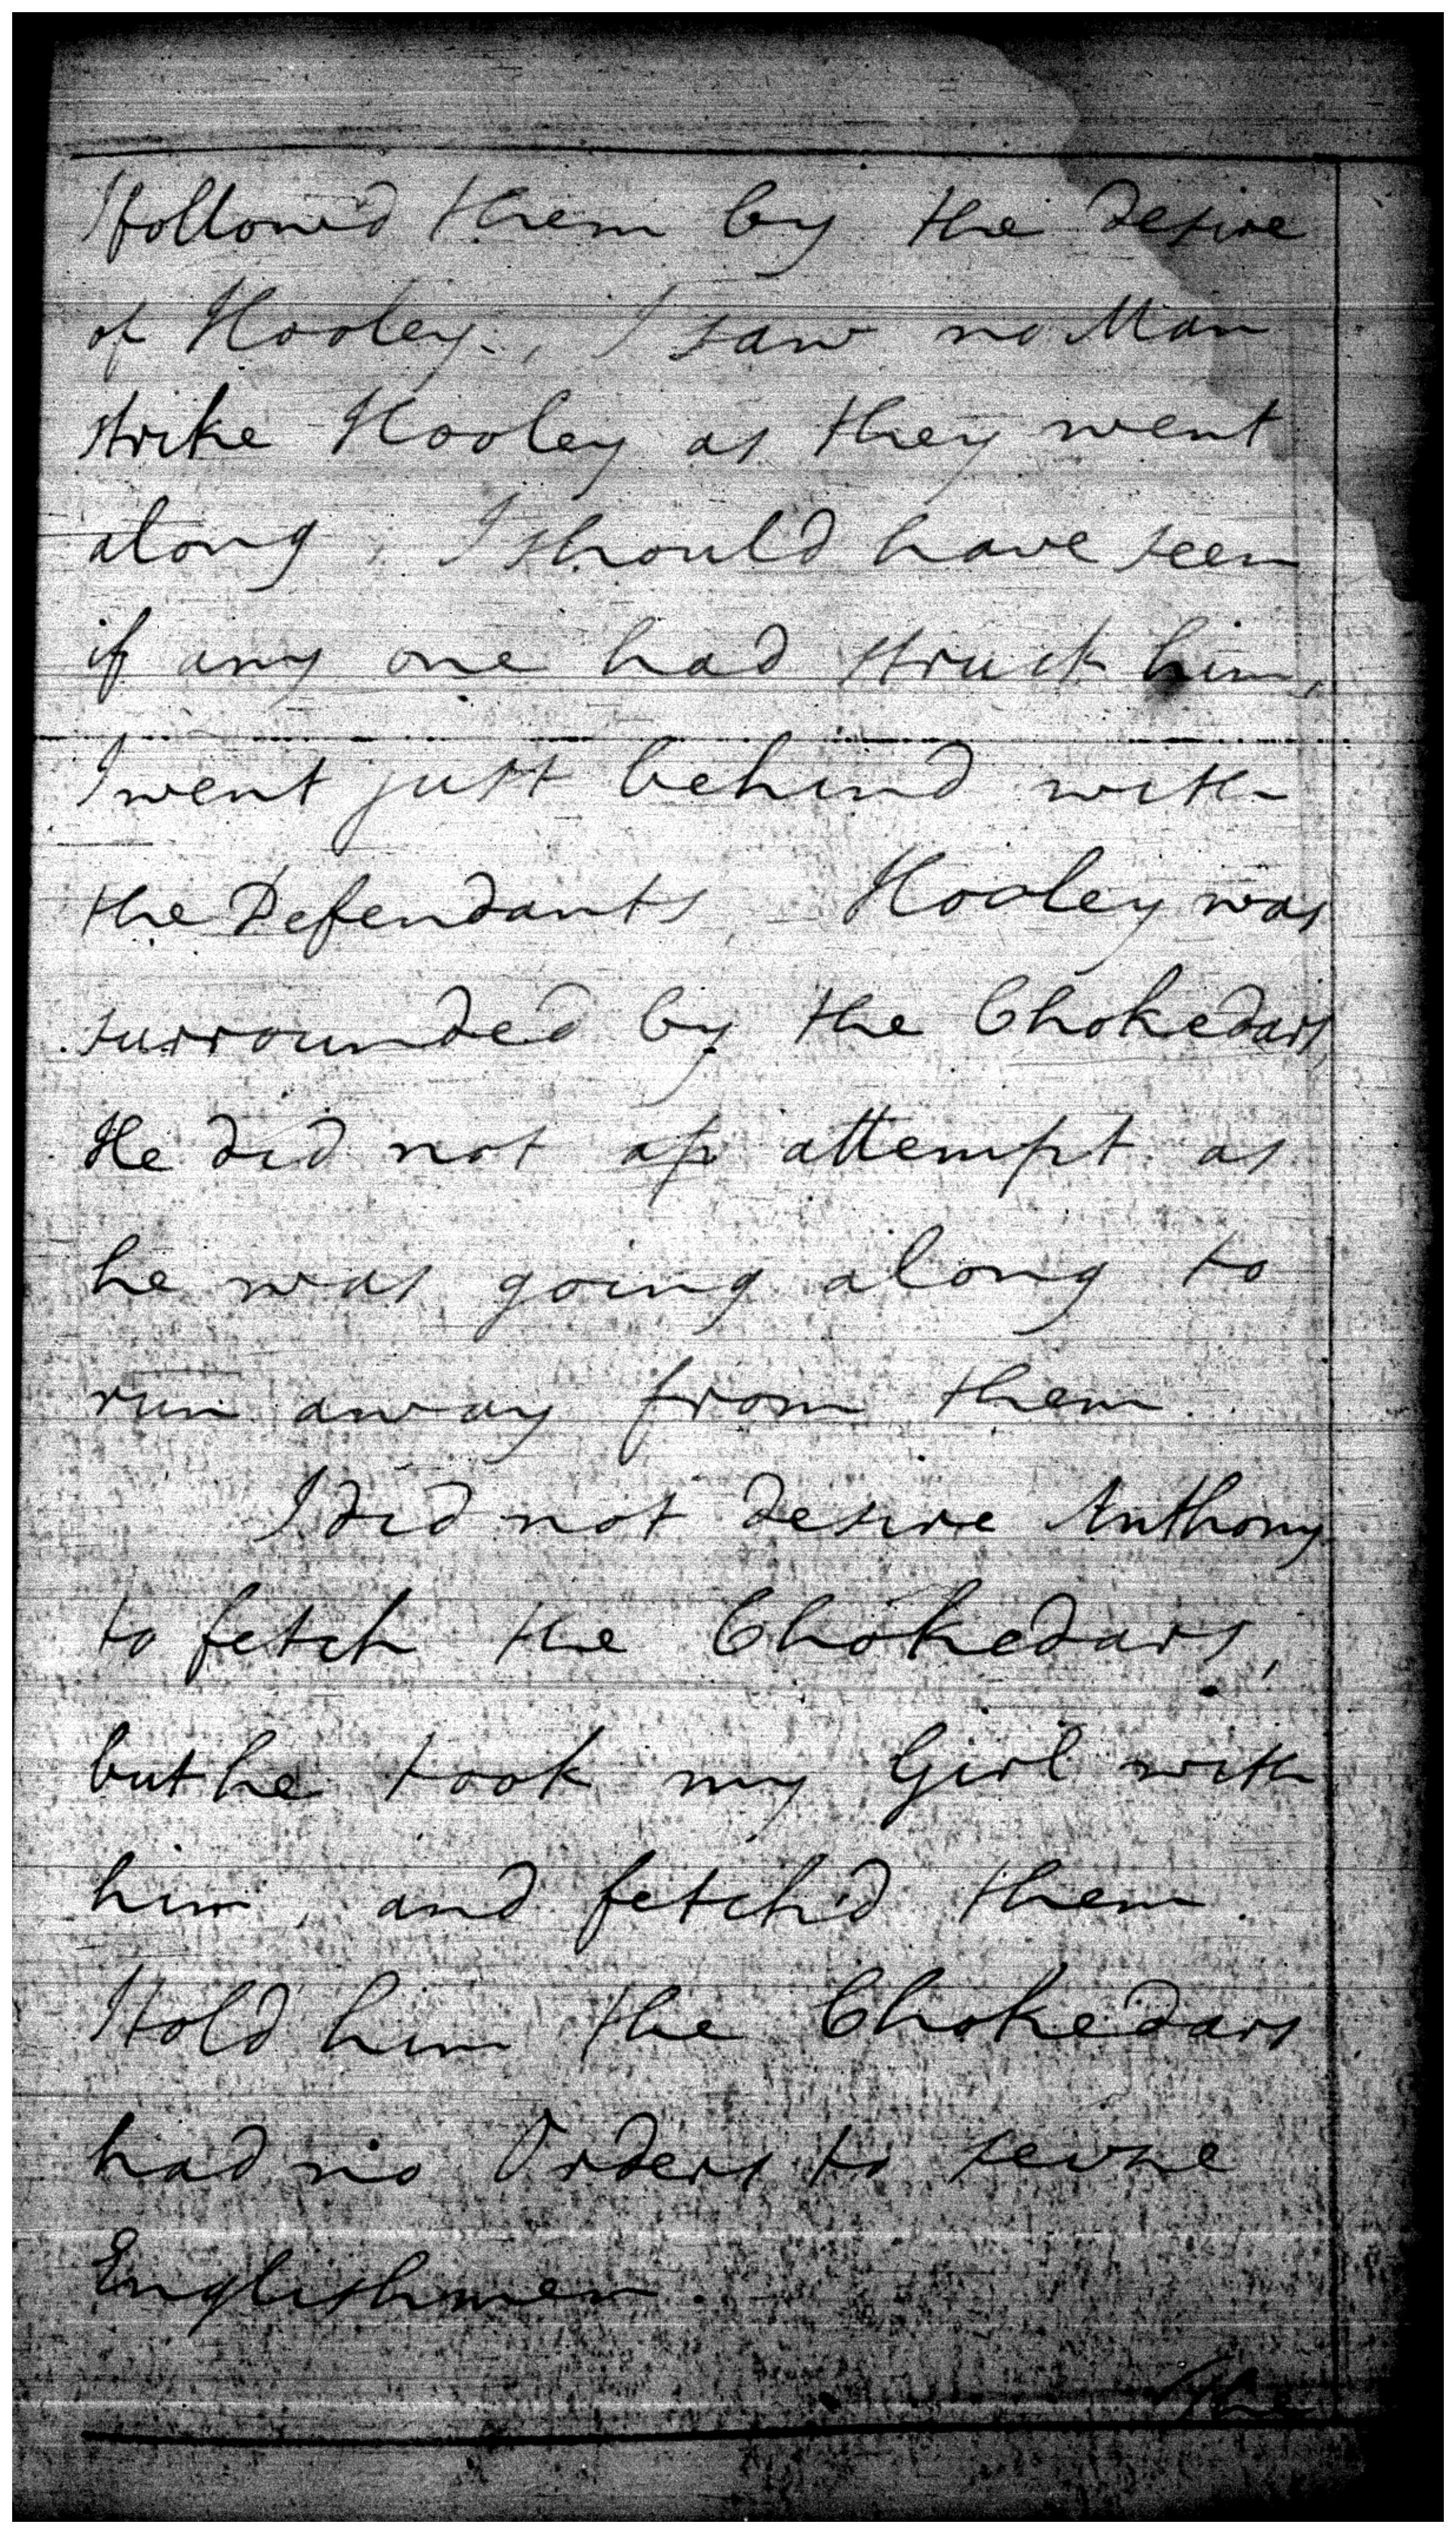 I follow'd them by the desire
of Hooley, I saw no Man
strike Hooley as they went
along, I should have seen
if any one had struck him,
I went just behind with
the Defendants, Hooley was
surrounded by the Chokedars,
He did not ap attempt as
he was going along to
run away from them.
I did not desire Anthony
to fetch the Chokedars,
but he took my Girl with
him, and fetch'd them.
I told him the Chokedars
had no Orders to seize
Englishmen.
The